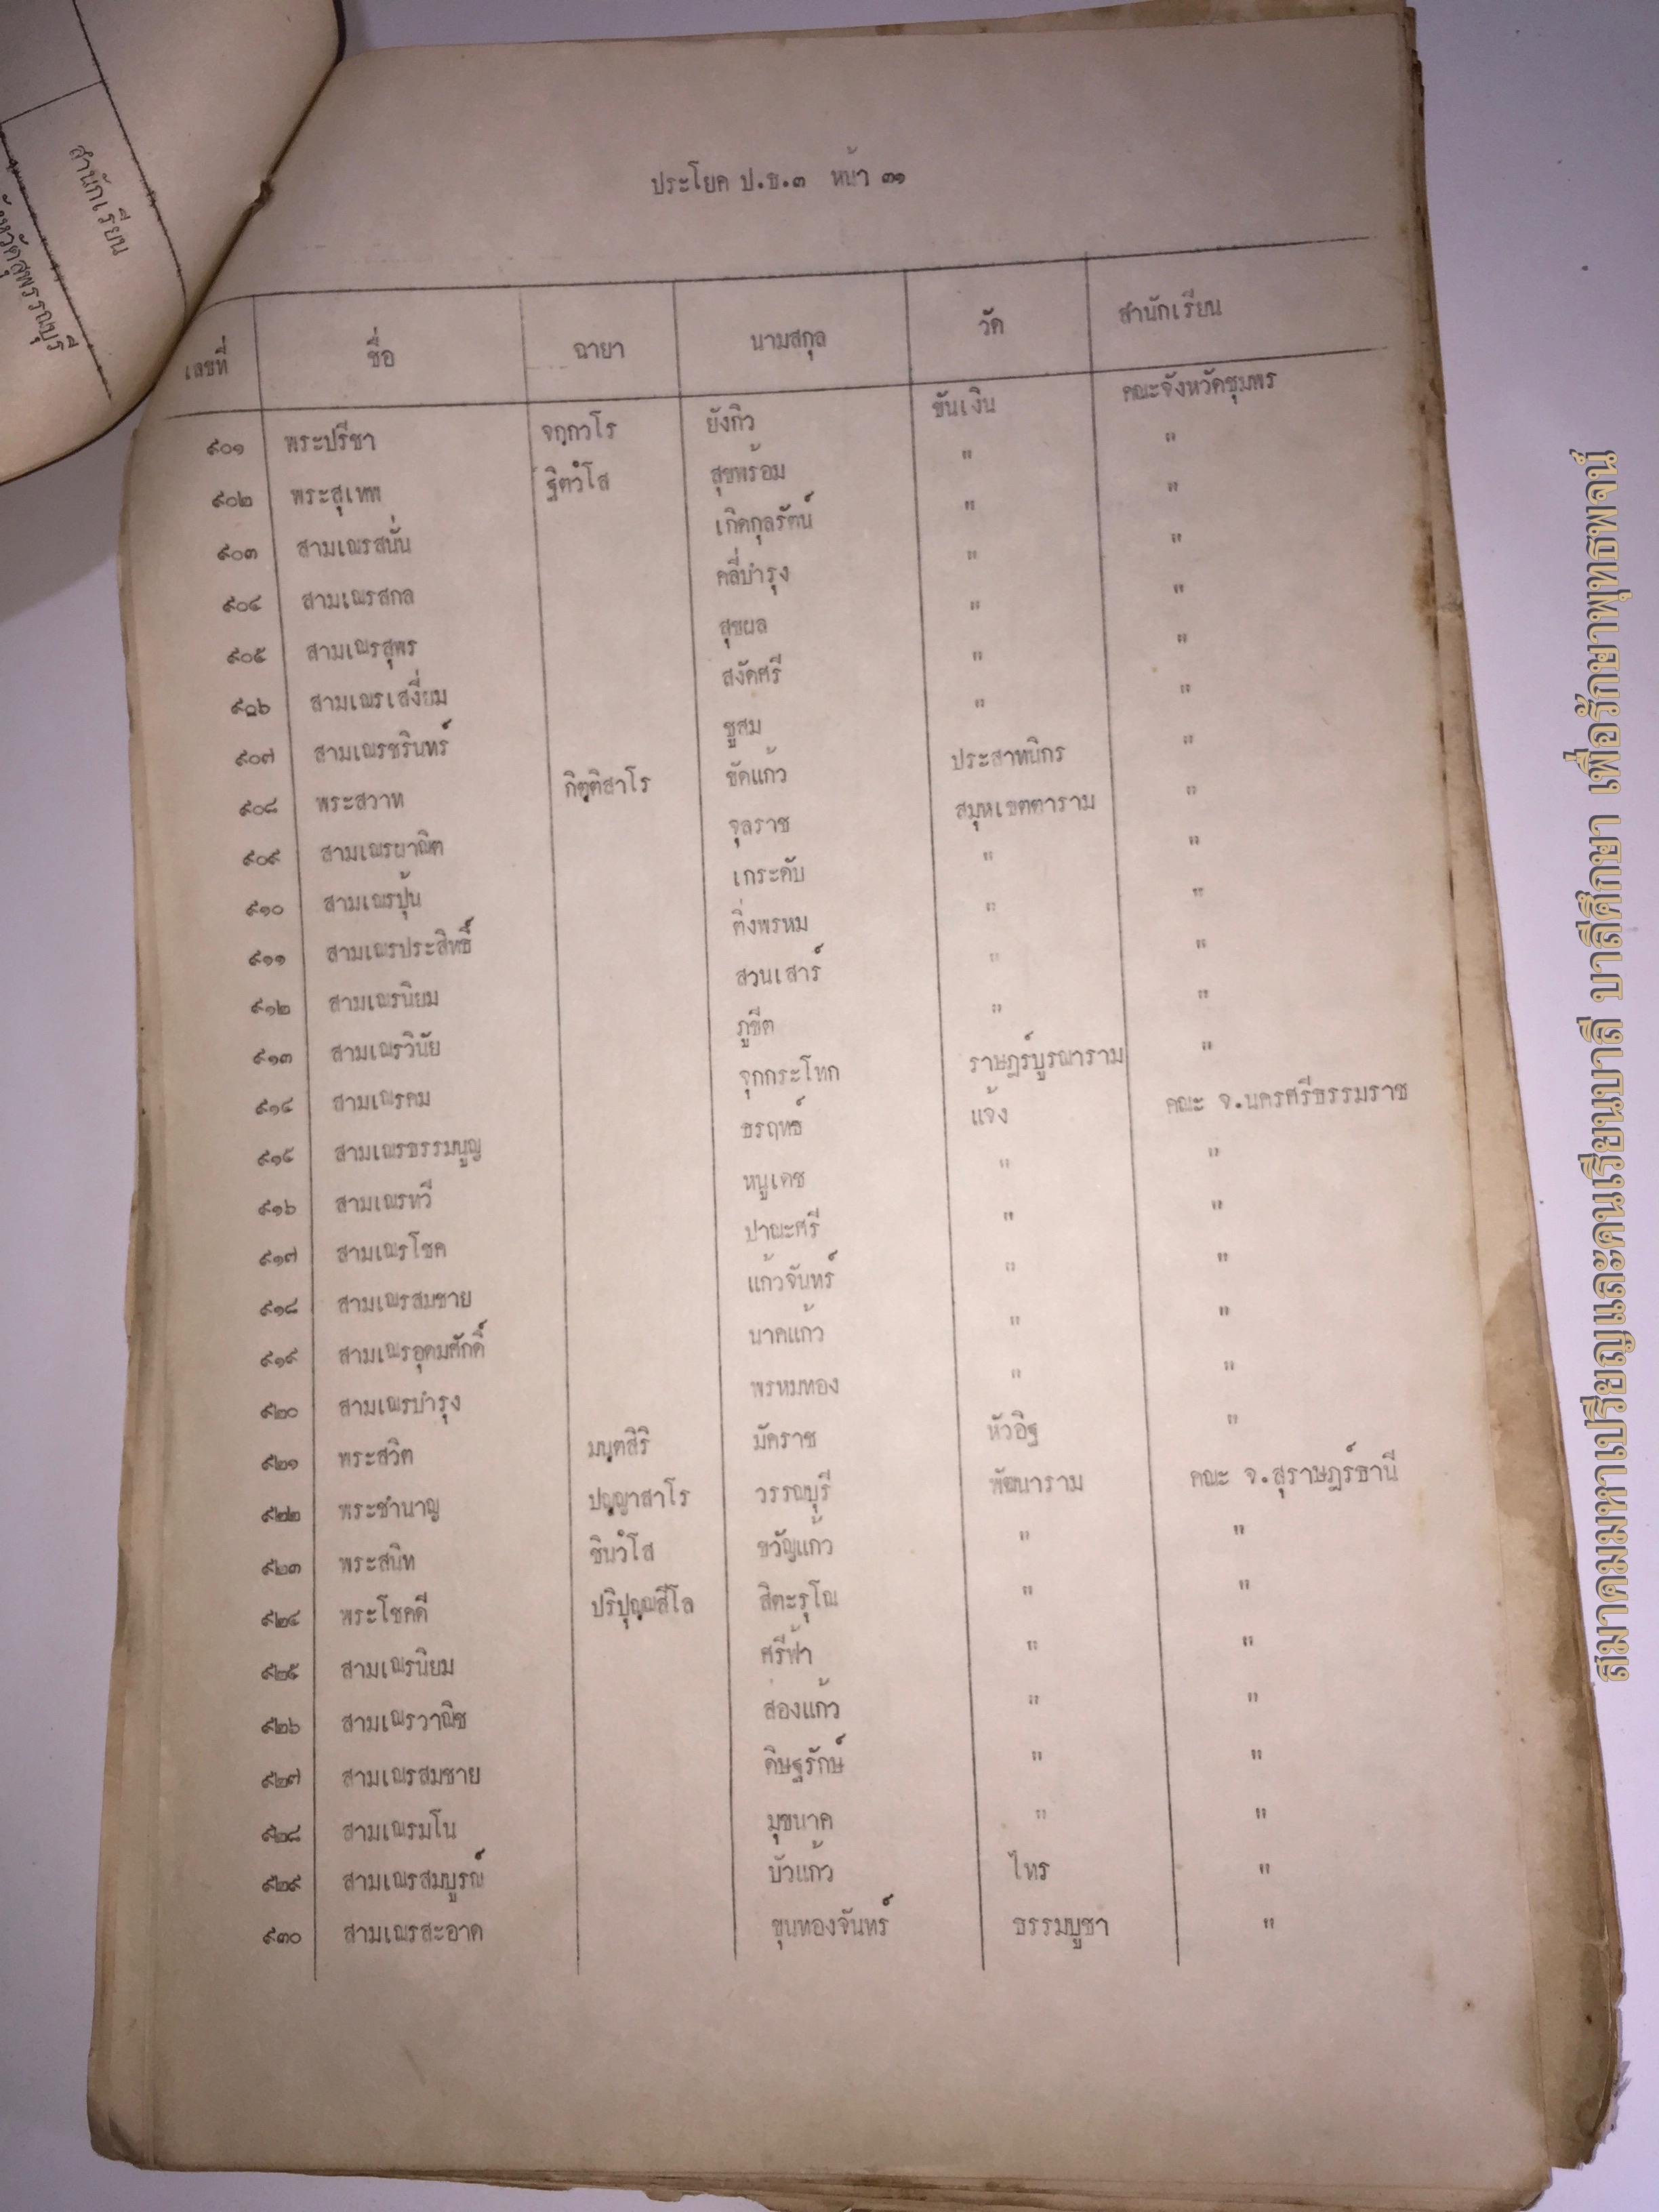 สำนักเรียน
จังหวัดสุพรรณบุรี
ประโยค ป.ธ.๓ หน้า ๓๑
เลขที่ ชื่อ ฉายา นามสกุล วัด สำนักเรียน
๙๐๑ พระปรีชา จกฺกวโร ยังกิว ขันเงิน คณะจังหวัดชุมพร
๙๐๒ พระสุเทพ ฐิตวํโส สุขพร้อม " "
๙๐๓ สามเณรสนั่น เกิดกุลรัตน์ " "
๙๐๔ สามเณรสกล คลี่บำรุง " "
๙๐๕ สามเณรสุพร สุขผล " "
๙๐๖ สามเณรเสงี่ยม สงัดศรี " "
๙๐๗ สามเณรชรินทร์ ชูสม " "
๙๐๘ พระสวาท กิตฺติสาโร ขัดแก้ว ประสาทนิกร "
๙๐๙ สามเณรผาณิต จุลราช สมุหเขตตาราม "
๙๑๐ สามเณรปุ้น เกระดับ " "
๙๑๑ สามเณรประสิทธิ์ ติ่งพรหม " "
๙๑๒ สามเณรนิยม สวนเสาร์ " "
๙๑๓ สามเณรวินัย ภูขีต " "
๙๑๔ สามเณรคม จุกกระโทก ราษฎร์บูรณาราม "
๙๑๕ สามเณรธรรมบูญ ธรฤทธ์ แจ้ง คณะ จ.นครศรีธรรมราช
๙๑๖ สามเณรทวี หนูเดช " "
๙๑๗ สามเณรโชค ปาณะศรี " "
๙๑๘ สามเณรสมชาย แก้วจันทร์ " "
๙๑๙ สามเณรอุดมศักดิ์ นาคแก้ว " "
๙๒๐ สามเณรบำรุง พรหมทอง " "
๙๒๑ พระสวิต มนฺตสิริ มัคราช หัวอิฐ "
๙๒๒ พระชำนาญ ปญฺญาสาโร วรรณบุรี พัฒนาราม คณะ จ.สุราษฎร์ธานี
๙๒๓ พระสนิท ชินวํโส ขวัญแก้ว " "
๙๒๔ พระโชคดี ปริปุณฺณสีโล สิตะรุโณ " "
๙๒๕ สามเณรนิยม ศรีฟ้า " "
๙๒๖ สามเณรวาณิช ส่องแก้ว " "
๙๒๗ สามเณรสมชาย ดิษฐรักษ์ " "
๙๒๘ สามเณรมโน มุขนาค " "
๙๒๙ สามเณรสมบูรณ์ บัวแก้ว ไทร "
๙๓๐ สามเณรสะอาด ขุนทองจันทร์ ธรรมบูชา "
สมาคมมหาเปรียญและคนเรียนบาลี บาลีศึกษา เพื่อรักษาพุทธพจน์